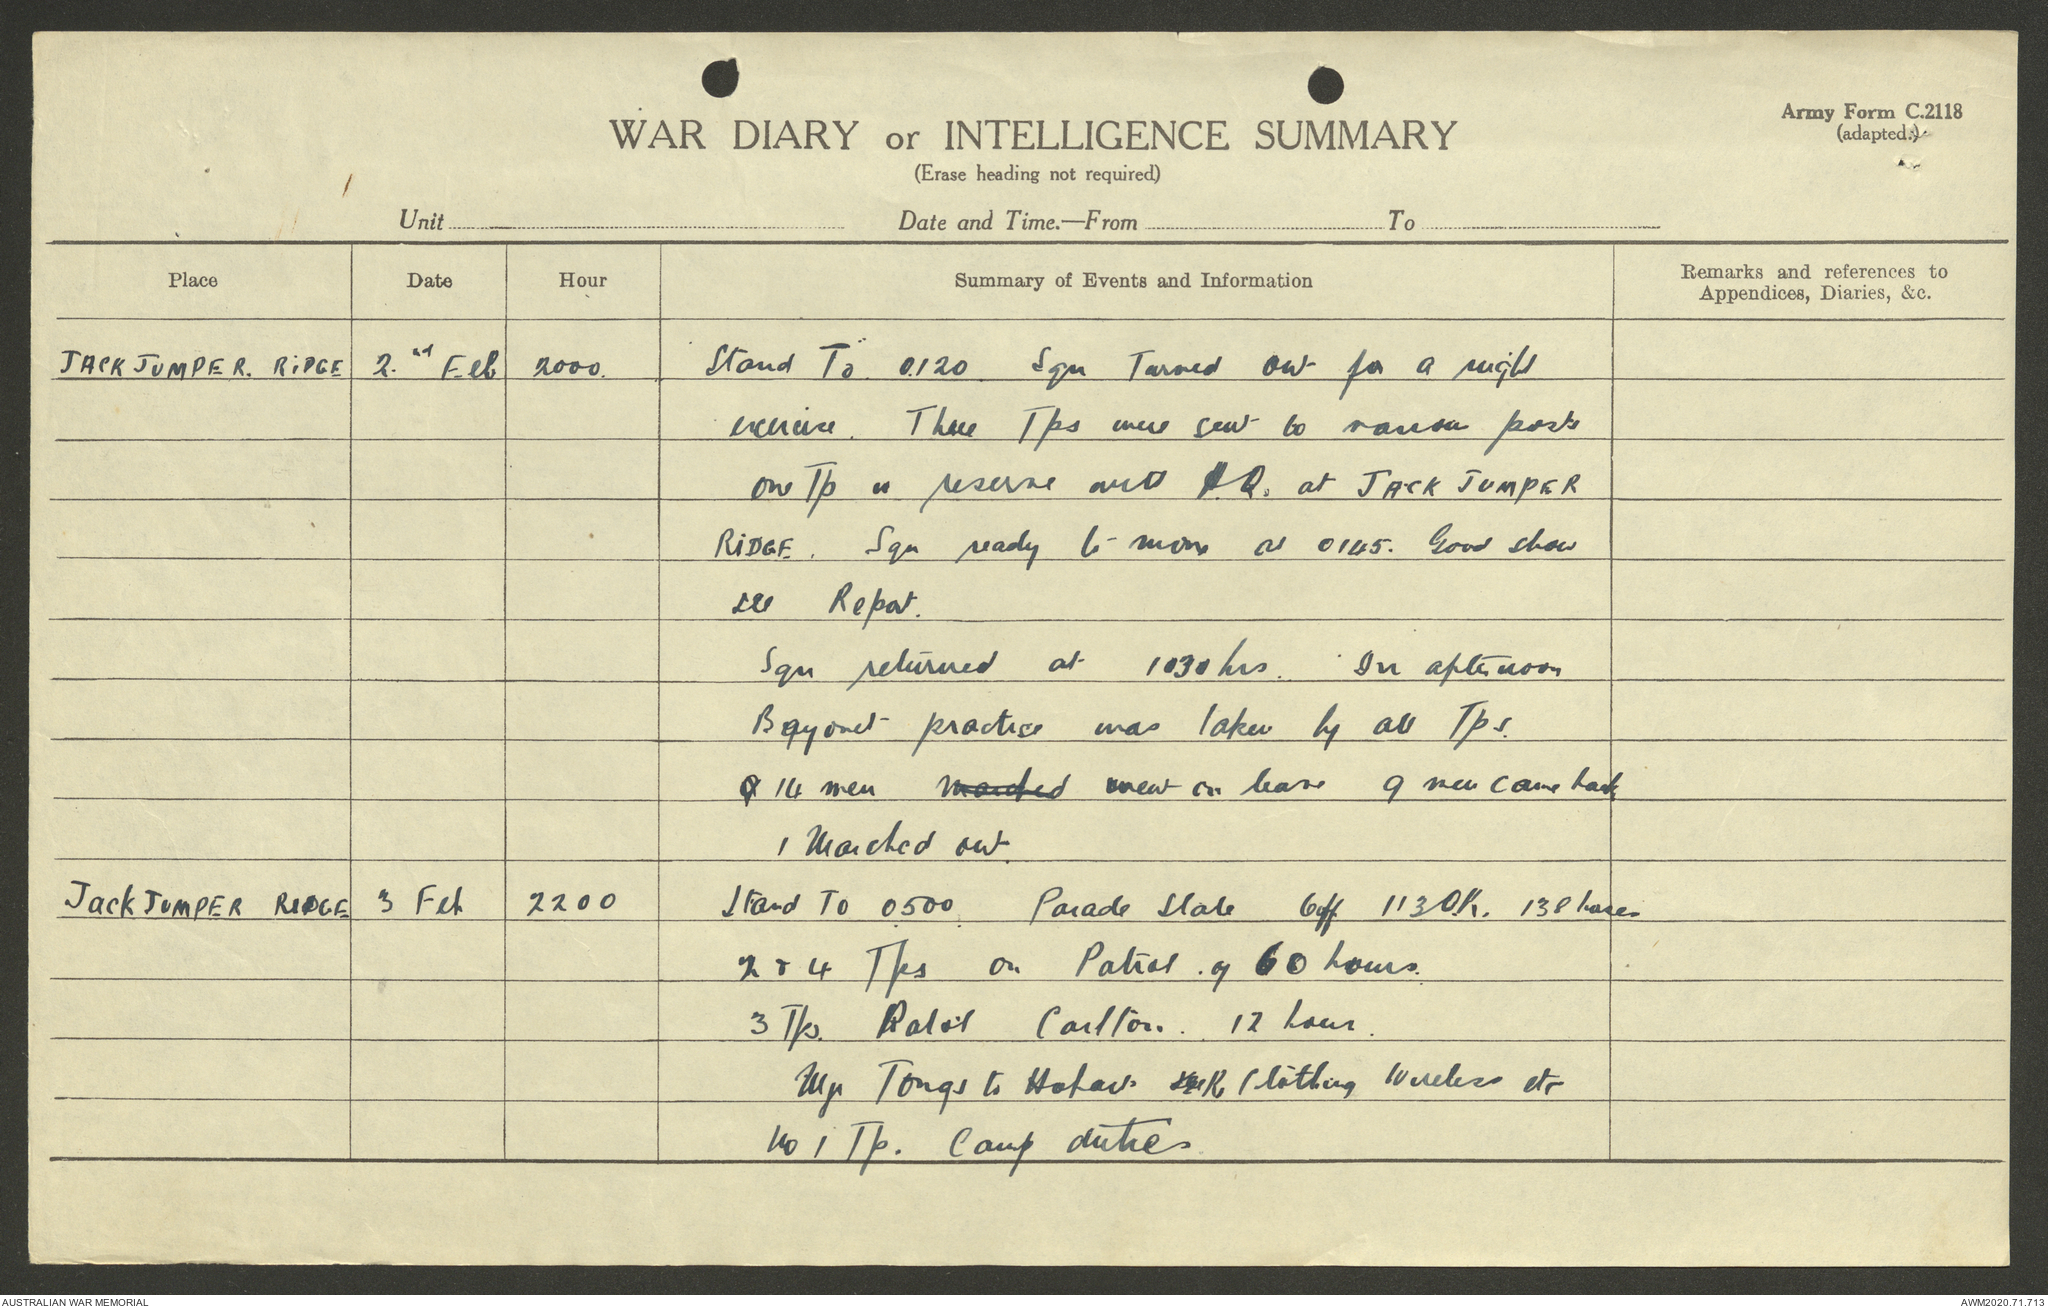 Army Form C.2118
(adapted.)
WAR DIARY or INTELLIGENCE SUMMARY
(Erase heading not required)
Unit Date and Time.—From To
Place Date Hour Summary of Events and Information Remarks and references to
Appendices, Diaries, &c.
JACK JUMPER. RIDGE 2.nd Feb 2000. Stand To 0120 Sqn Turned out for a night
exercise. Three Tps were sent to various posts
one Tp in reserve with H.Q. at JACK JUMPER
RIDGE. Sqn ready to move at 0145. Good show
see Report.
Sqn returned at 1030 hrs. In afternoon
Bayonet practice was taken by all Tps.
14 men marched went on leave 9 men came back
1 Marched out.
Jack JUMPER RIDGE 3 Feb 2200 Stand To 0500. Parade State 6 off 113 O.R. 138 horses
2 & 4 Tps on Patrol of 60 hours.
3 Tps. Patrol Carlton. 12 hour.
Major Tongs to Hobart Clothing Wireless etc
No 1 Tp. Camp duties
AUSTRALIAN WAR MEMORIAL AWM2020.71.713